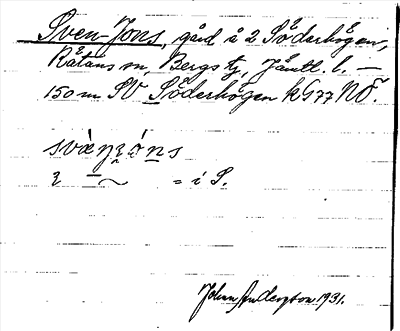 Sven-Jons, gård å 2 Söderhögen,
Rätans sn, Bergs tg, Jämtl. l. —
150 m SV Söderhögen kG77NÖ.
= i S.
John Anderzon 1931.